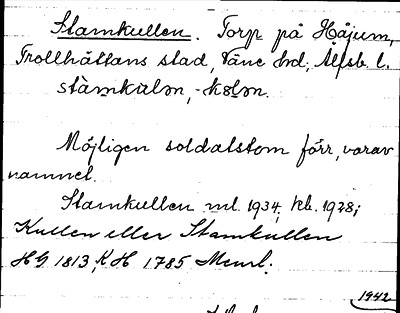 Stamkullen. Torp på Håjum,
Trollhättans stad, Väne hd, Älfsb. l.
stàmkùlən, -kələn.
Möjligen soldatstom förr, varav
namnet.
Stamkullen ml. 1934, kb. 1928;
Kullen eller Stamkullen
HG 1813, KH 1785 Menl.
1942